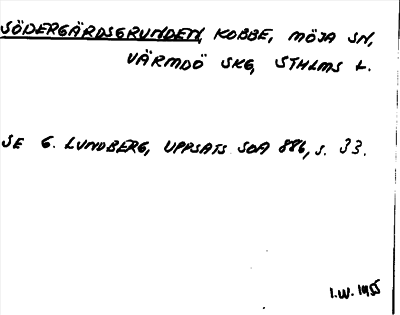 SÖDERGÅRDSGRUNDEN, KOBBE, MÖJA SN,
VÄRMDÖ SKG, STHLMS L.
SE G. LUNDBERG, UPPSATS SOA 886, S. 33.
I.W. 1955